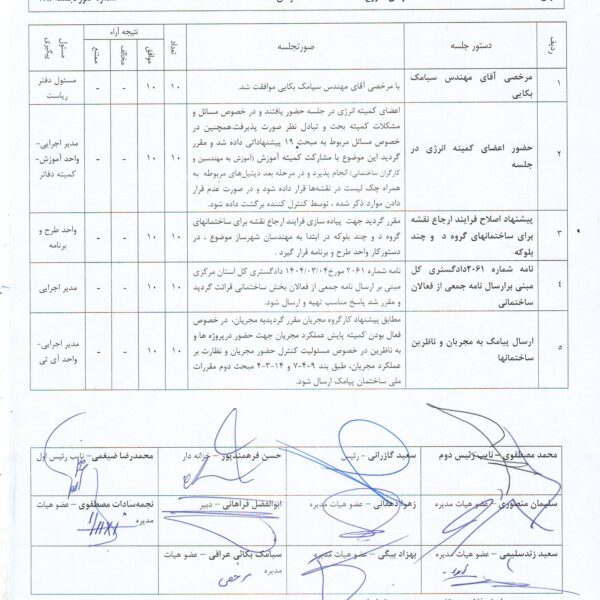 ردیف
دستور جلسه
صورتجلسه
تعداد
نتیجه آراء
موافق
مخالف
ممتنع
مسئول پیگیری
۱
مرخصی آقای مهندس سیامک
بکایی
با مرخصی آقای مهندس سیامک بکایی موافقت شد.
۱۰
۱۰
-
-
مسئول دفتر
ریاست
۲
حضور اعضای کمیته انرژی در
جلسه
اعضای کمیته انرژی در جلسه حضور یافتند و در خصوص مسائل و
مشکلات کمیته بحث و تبادل نظر صورت پذیرفت.همچنین در
خصوص مسائل مربوط به مبحث ۱۹ پیشنهاداتی داده شد و مقرر
گردید این موضوع با مشارکت کمیته آموزش (آموزش به مهندسین و
کارگران ساختمانی) انجام پذیرد و در مرحله بعد دیتیل‌های مربوطه به
همراه چک لیست در نقشه‌ها قرار داده شود و در صورت عدم قرار
دادن موارد ذکر شده ، توسط کنترل کننده برگشت داده شود.
۱۰
۱۰
-
-
مدیر اجرایی-
واحد آموزش-
کمیته دفاتر
۳
پیشنهاد اصلاح فرایند ارجاع نقشه
برای ساختمانهای گروه د و چند
بلوکه
مقرر گردید جهت پیاده سازی فرایند ارجاع نقشه برای ساختمانهای
گروه د و چند بلوکه در ابتدا به مهندسان شهرساز موضوع ، در
دستورکار واحد طرح و برنامه قرار گیرد .
۱۰
۱۰
-
-
واحد طرح و
برنامه
۴
نامه شماره ۲۰۶۱دادگستری کل
مبنی برارسال نامه جمعی از فعالان
ساختمانی
نامه شماره ۲۰۶۱ مورخ۱۴۰۴/۰۳/۰۴ دادگستری کل استان مرکزی
مبنی بر ارسال نامه جمعی از فعالان بخش ساختمانی قرائت گردید
و مقرر شد پاسخ مناسب تهیه و ارسال شود.
۱۰
۱۰
-
-
مدیر اجرایی
۵
ارسال پیامک به مجریان و ناظرین
ساختمانها
مطابق پیشنهاد کارگروه مجریان مقرر گردیدبه مجریان، در خصوص
فعال بودن کمیته پایش عملکرد مجریان جهت حضور درپروژه ها و
به ناظرین در خصوص مسئولیت کنترل حضور مجریان و نظارت بر
عملکرد مجریان، طبق بند ۹-۴-۷ و ۱۴-۳-۴ مبحث دوم مقررات
ملی ساختمان پیامک ارسال شود.
۱۰
۱۰
-
-
مدیر اجرایی-
واحد آی تی
محمد مصطفوی - نایب رئیس دوم
سعید گازرانی - رئیس
حسن فرهمندپور - خزانه دار
محمدرضا ضیغمی - نایب رئیس اول
سلیمان منصوری - عضو هیات مدیره
زهرا دهقانی - عضو هیات مدیره
ابوالفضل فراهانی - دبیر
نجمه‌سادات مصطفوی - عضو هیات
مدیره
سعید زندسلیمی - عضو هیات مدیره
بهزاد بیگی - عضو هیات مدیره
سیامک بکائی عراقی - عضو هیات
مدیره
مرخصی